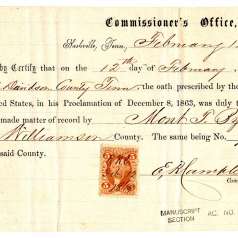 Commissioner's Office,
Nashville, Tenn., February 1
by Certify that on the 12th day of February
Davidson County Tenn the oath prescribed by the
ted States, in his Proclamation of December 8, 1863, was duly t
made matter of record by Mont. J.
Williamson County. The same being No.
said County.
E. R. Campbe
Com
MANUSCRIPT AC. NO.
SECTION